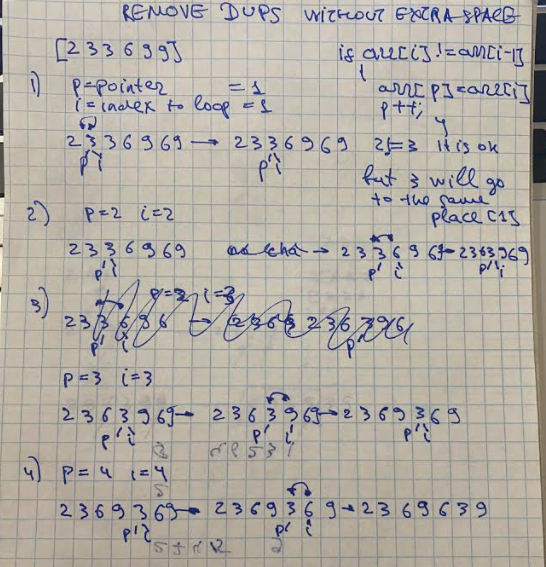 REMOVE DUPS WITHOUT EXTRA SPACE
[2 3 3 6 9 9]
is arr[i] != arr[i-1]
{
1) p=pointer = 1
i=index to loop = 1
arr[p]=arr[i]
p++;
}
2 3 3 6 9 6 9 → 2 3 3 6 9 6 9
p i
p i
2!=3 it is ok
but 3 will go
to the same
place [1]
2) p=2 i=2
2 3 3 6 9 6 9 → 2 3 3 6 9 6 9 → 2 3 6 3 9 6 9
p i
p i
p i
3)
p=3 i=3
2 3 6 3 9 6 9 → 2 3 6 3 9 6 9 → 2 3 6 9 3 6 9
p i
p i
p i
4) p=4 i=4
2 3 6 9 3 6 9 → 2 3 6 9 3 6 9 → 2 3 6 9 6 3 9
p i
p i